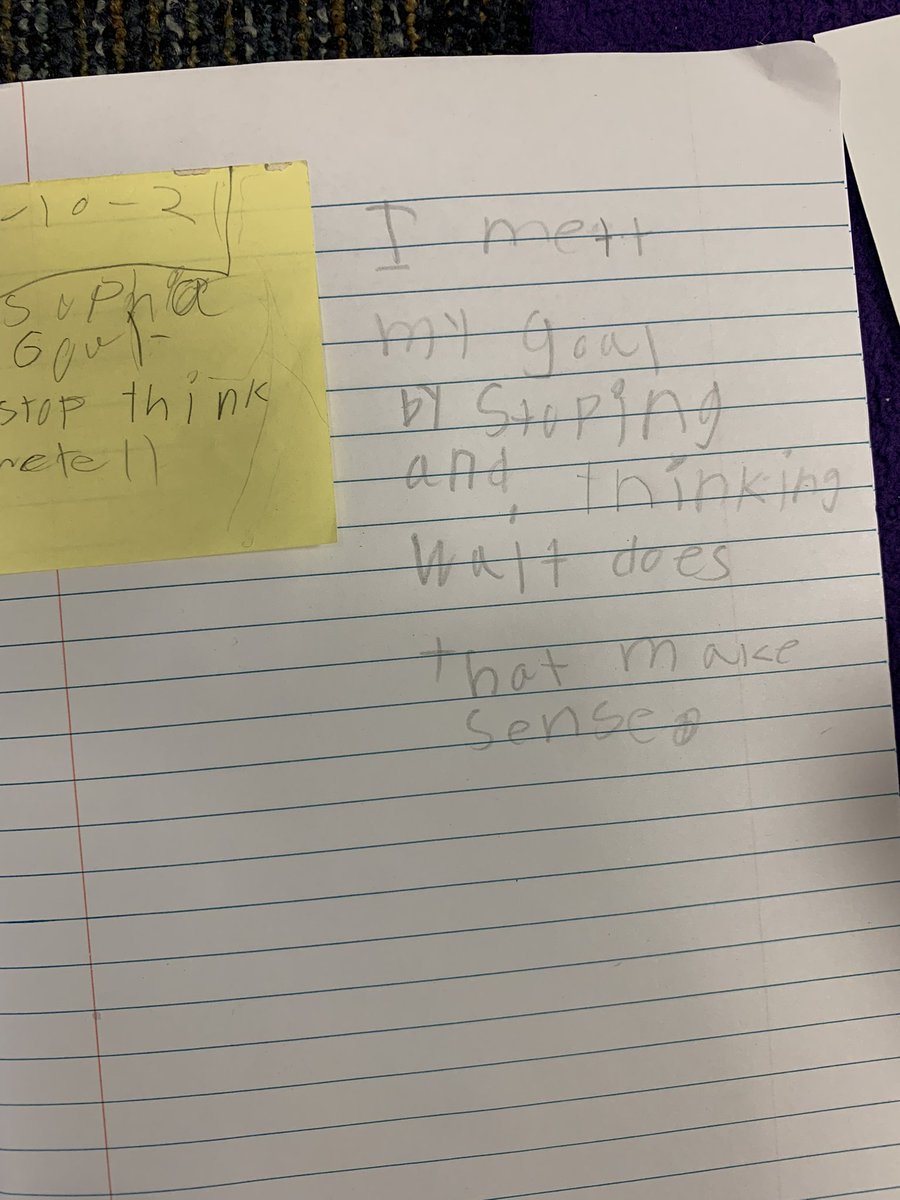 -10-2
Sophia
Goul-
stop think
retell
I mett
my goal
by Stoping
and thinking
Wait does
that make
sense.